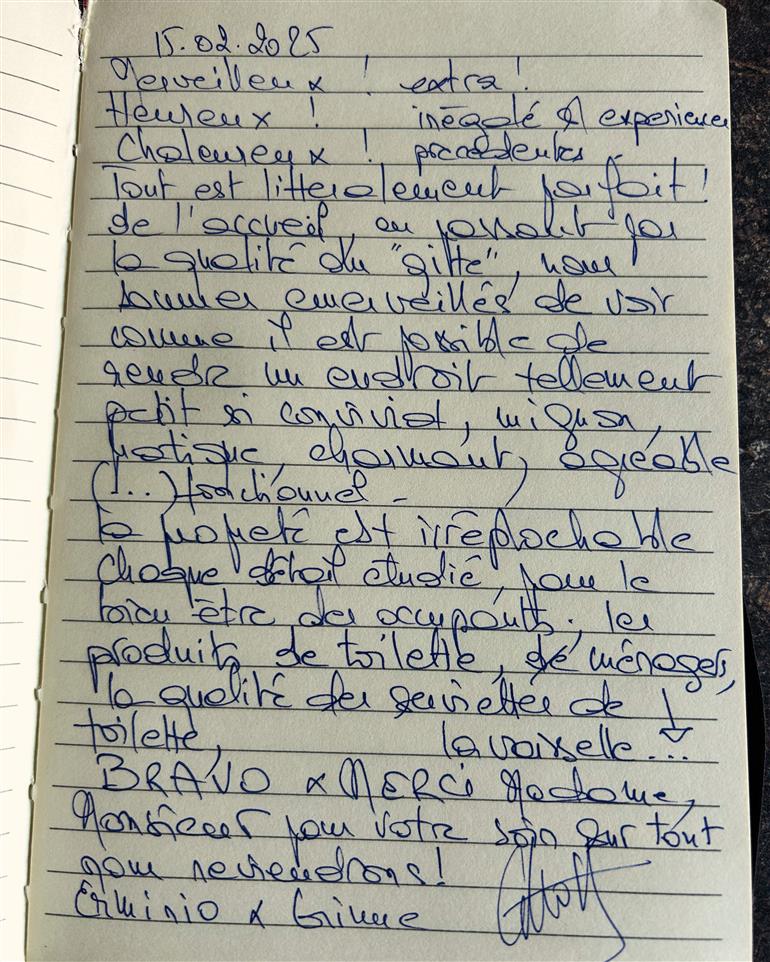 15.02.2025
Merveilleux ! extra !
Heureux ! inégalé & experiences
Chaleureux ! précédentes
Tout est litteralement parfait !
de l'accueil, en passant par
la qualité du "gitte", nous
sommes emerveillés de voir
comme il est possible de
rendre un endroit tellement
petit si convivial, mignon,
pratique, charmant, agréable
(...) fonctionnel -
la propreté est irréplochable
chaque détail étudié, pour le
bien être des occupants. les
produits de toilette, de ménages,
la qualité des serviettes de ↓
toilette, la vaisselle...
BRAVO & MERCI Madame,
Monsieur pour votre soin sur tout
nous reviendrons !
Erminio &